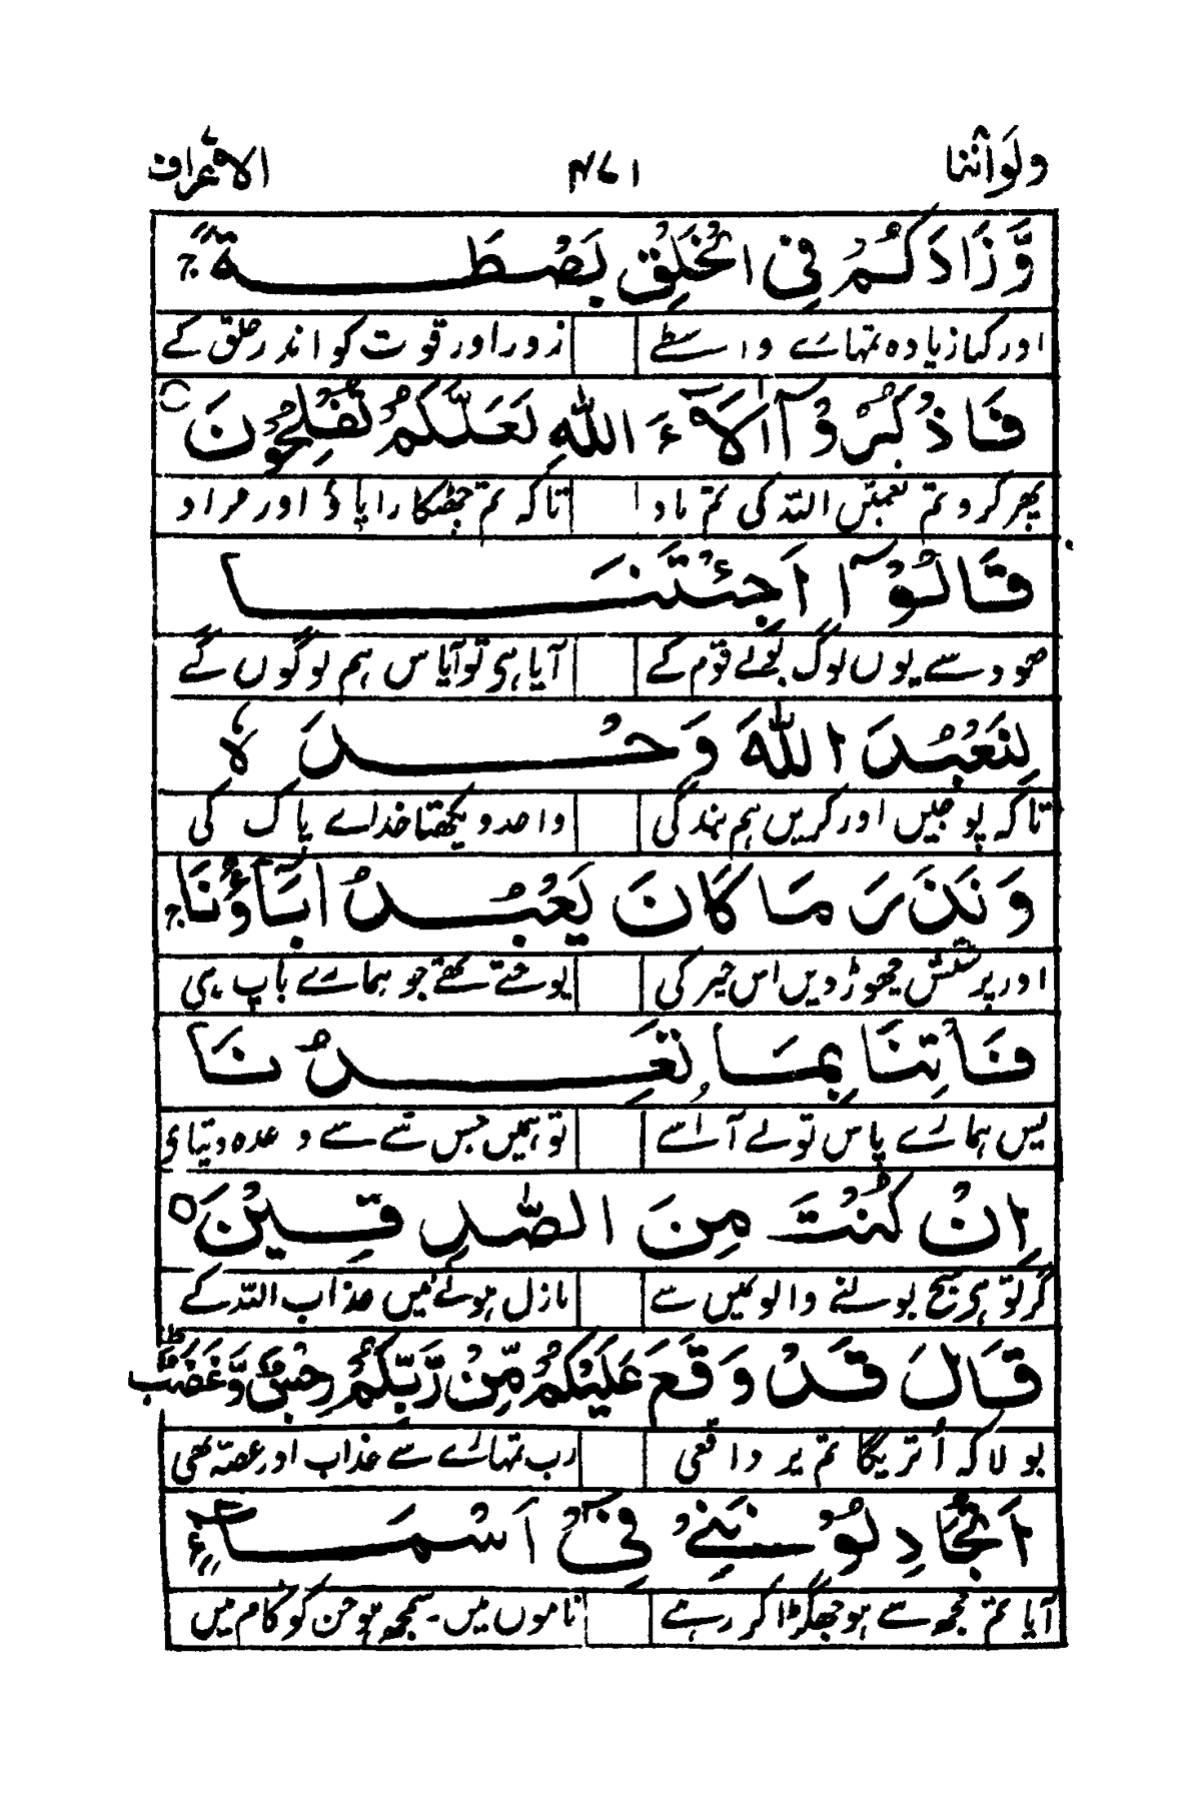 ولواننا ۴۷۱ الاعراف
وَّزَادَكُمْ فِي الْخَلْقِ بَصْطَةً ۚ
اور کیا زیادہ تمہارے واسطے زور اور قوت کو اندر خلق کے
فَاذْكُرُوْٓا اٰلَآءَ اللّٰهِ لَعَلَّكُمْ تُفْلِحُوْنَ ○
پھر کرو تم نعمتیں اللہ کی تم یاد تاکہ تم چھٹکارا پاؤ اور مراد
قَالُوْٓا اَجِئْتَنَا
ہود سے یوں لوگ بولے قوم کے آیا ہی تو آیاس ہم لوگوں کے
لِنَعْبُدَ اللّٰهَ وَحْدَهٗ
تاکہ پوجیں اور کریں ہم بندگی واحد و یکتا خدائے پاک کی
وَنَذَرَ مَا كَانَ يَعْبُدُ اٰبَآؤُنَا ۚ
اور پرستش چھوڑ دیں اس چیز کی پوجتے تھے جو ہمارے باپ ہی
فَاْتِنَا بِمَا تَعِدُنَا
پس ہمارے پاس تو لے آ اسے تو ہمیں جس شے سے وعدہ دیتا ہی
اِنْ كُنْتَ مِنَ الصّٰدِقِيْنَ ○
گر تو ہی سچ بولنے والو نمیں سے نازل ہونے میں عذاب اللہ کے
قَالَ قَدْ وَقَعَ عَلَيْكُمْ مِّنْ رَّبِّكُمْ رِجْسٌ وَّغَضَبٌ ۭ
بولا کہ اُتریگا تم پر واقعی رب تمہارے سے عذاب اور غصہ بھی
اَتُجَادِلُوْنَنِيْ فِيْٓ اَسْمَآءٍ
آیا تم مجھ سے ہو جھگڑا کر رہے ناموں میں ۔ سمجھ ہو جن کو کام میں